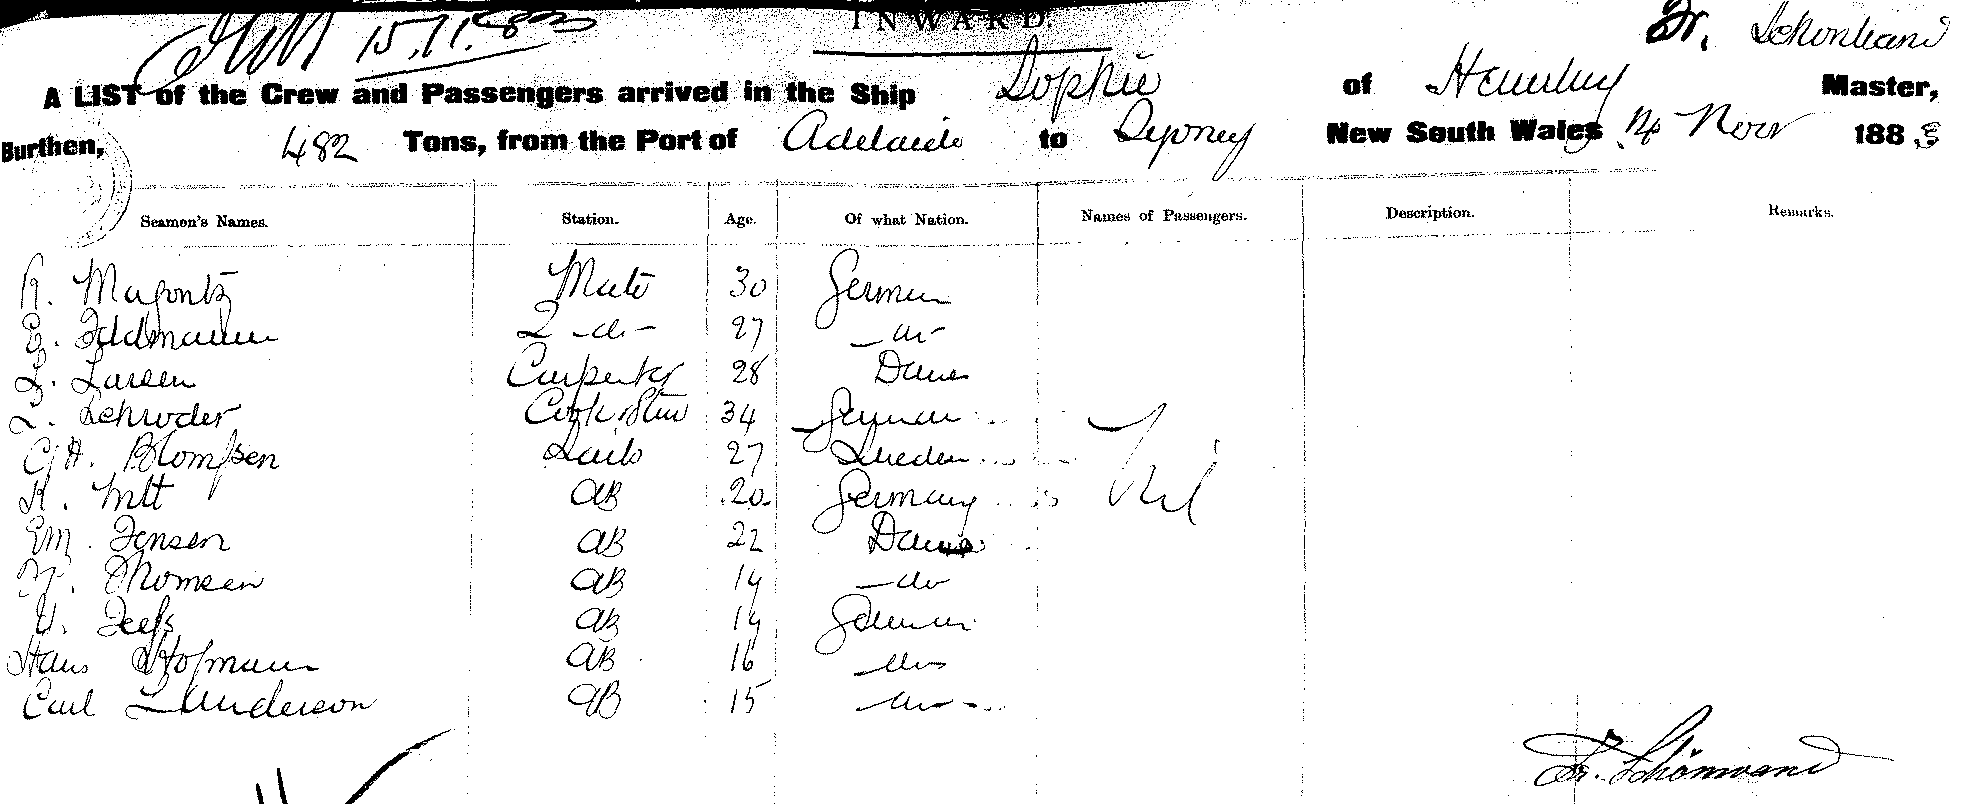 15.11.83
INWARD
Fr. Schonwand
A LIST of the Crew and Passengers arrived in the Ship Sophie of Hamburg Master,
Burthen, 482 Tons, from the Port of Adelaide to Sydney New South Wales 14 Novr 1883
Seamen's Names. Station. Age. Of what Nation. Names of Passengers. Description. Remarks.
Mate 30 German
E. Feldmann 2 -do- 27 -do-
L. Larsen Carpenter 28 Danes
L. Schroder Cook & Stew 34 German
C H. Blompsen Sailo 27 Sweden
K. Mtt AB 20 Germany Nil
Em. Jensen AB 22 Danes
Thomsen AB 19 -do
H. Feefs AB 19 German
Hans Hofmann AB 16 -do
Carl Lunderson AB 15 -do-
Fr. Schönwand